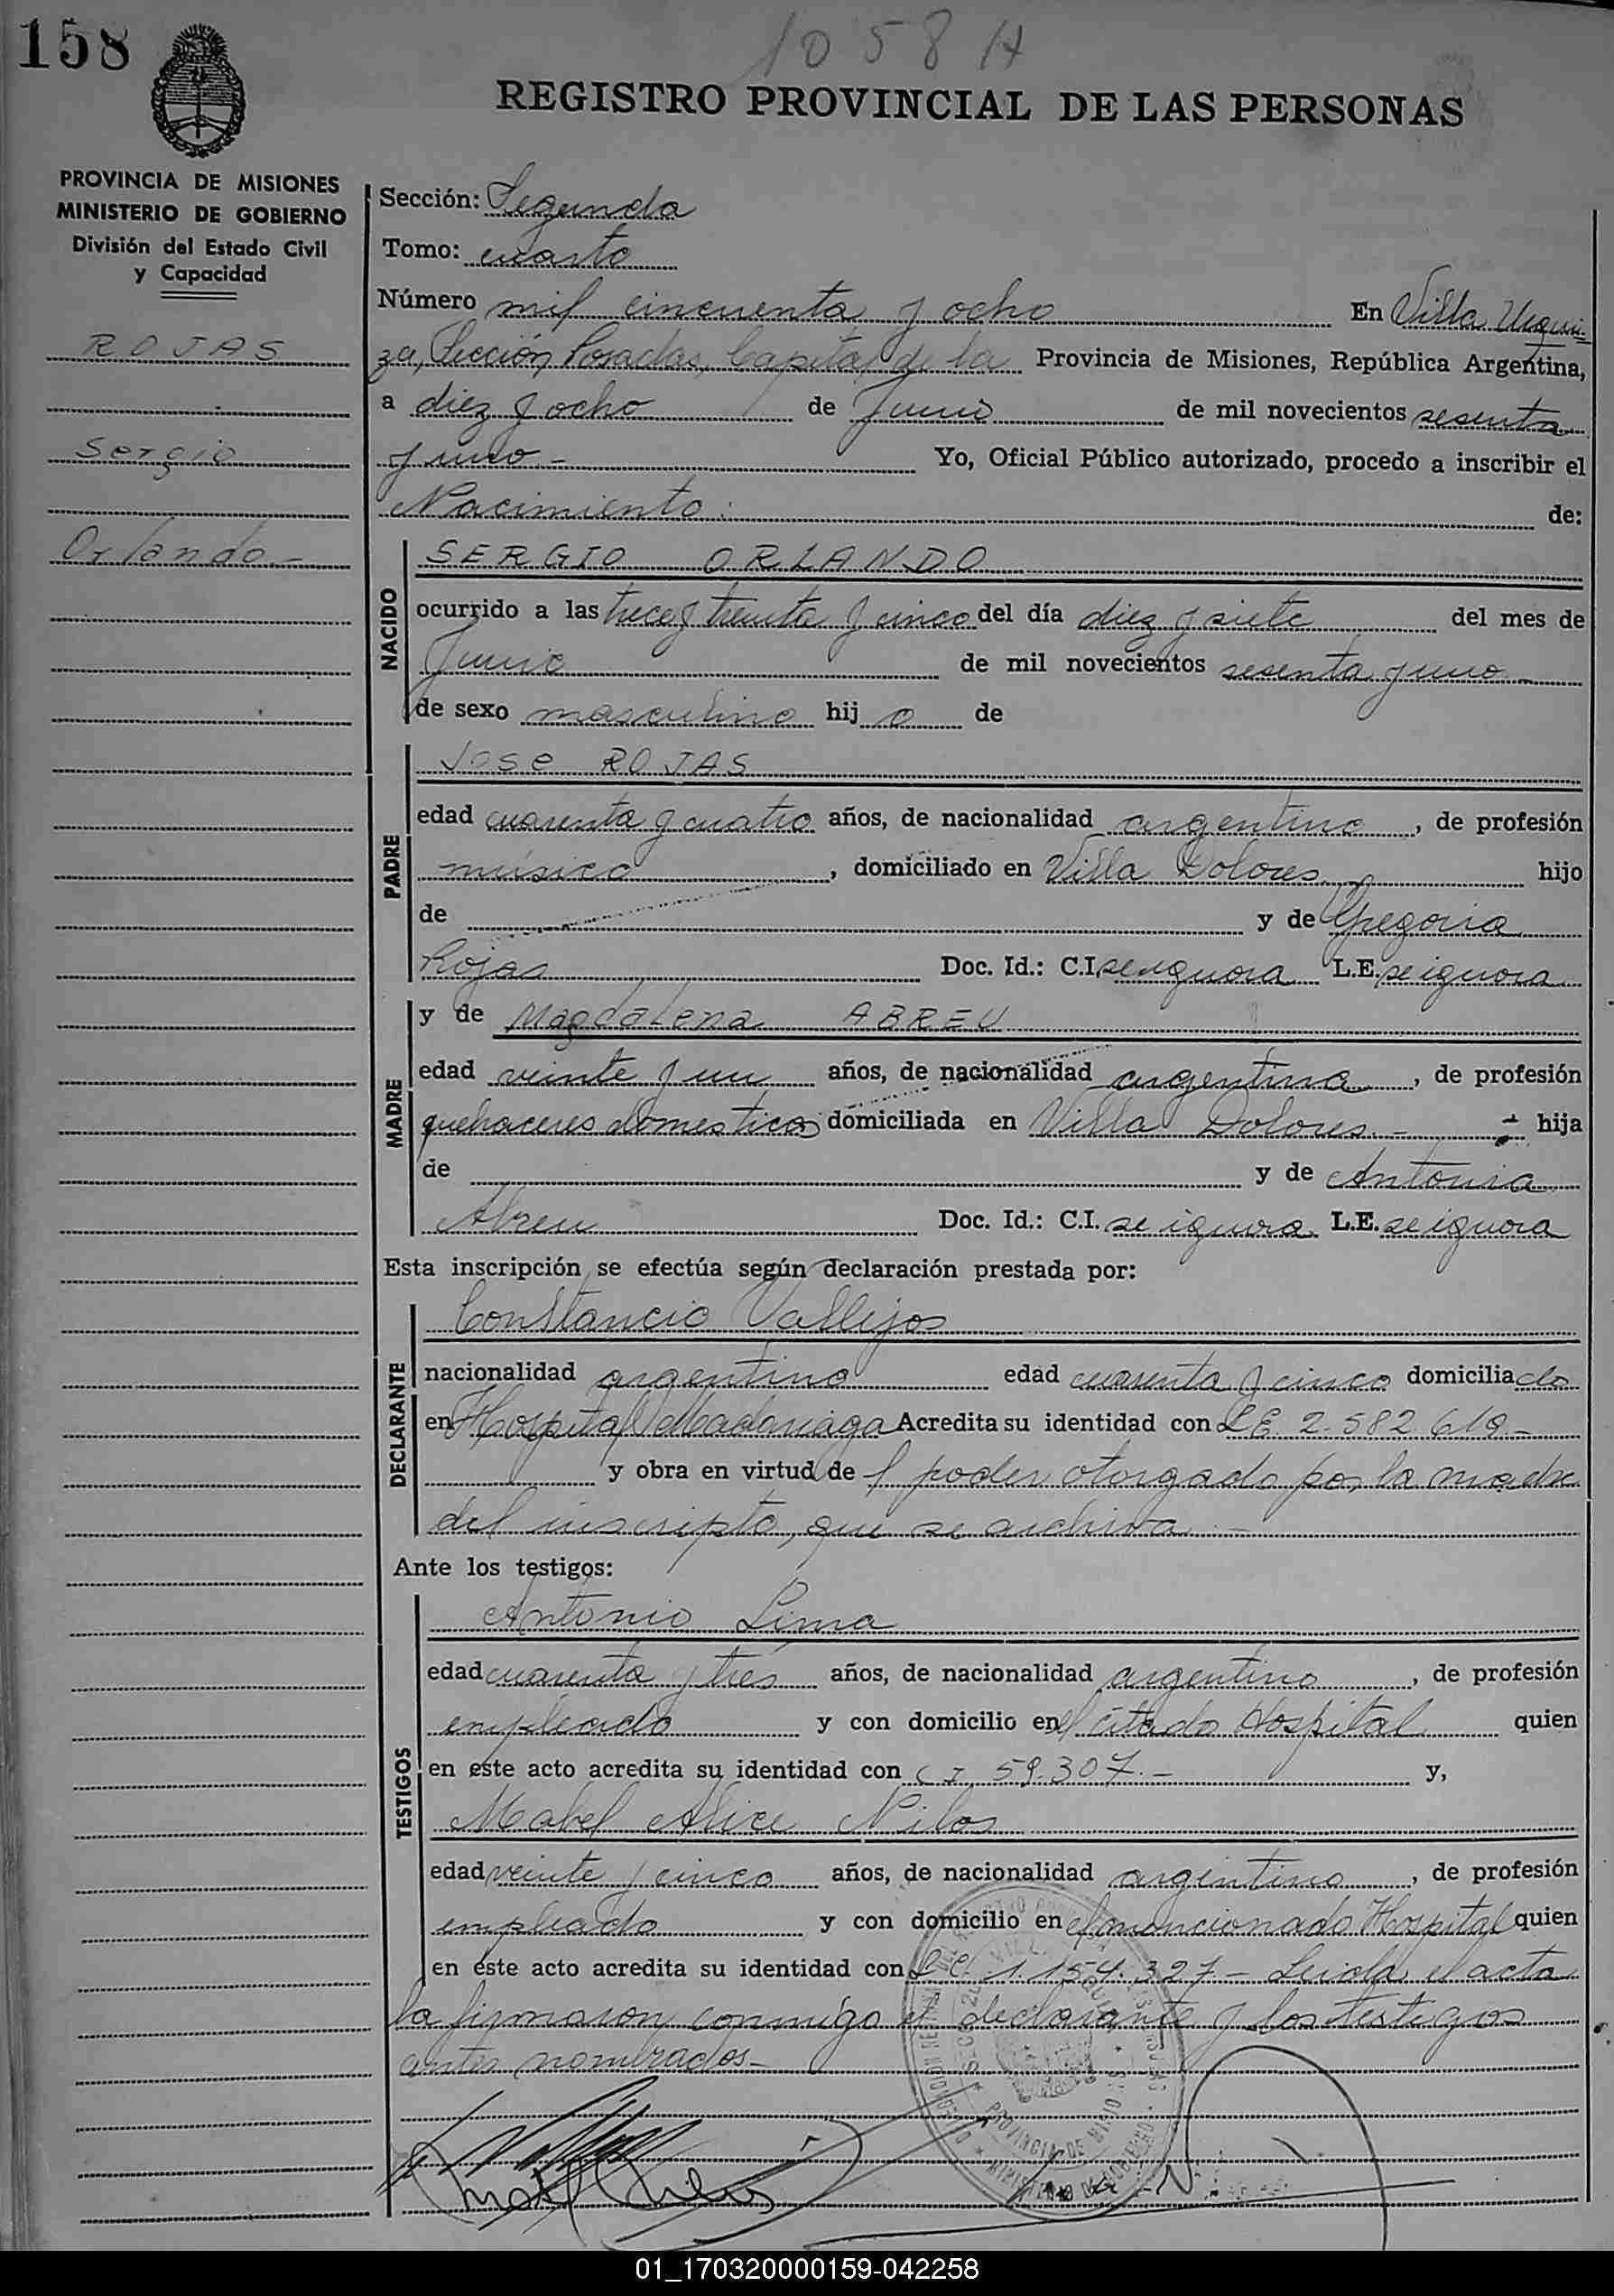 158
1058 H
REGISTRO PROVINCIAL DE LAS PERSONAS
PROVINCIA DE MISIONES
MINISTERIO DE GOBIERNO
División del Estado Civil
y Capacidad
ROJAS
Sergio
Orlando.-
Sección: Segunda
Tomo: cuarto
Número mil cincuenta y ocho En Villa Urqui-
za, Sección Posadas, Capital de la Provincia de Misiones, República Argentina,
a diez y ocho de Junio de mil novecientos sesenta
y uno.- Yo, Oficial Público autorizado, procedo a inscribir el
Nacimiento: de:
NACIDO
SERGIO ORLANDO
ocurrido a las trece y treinta y cinco del día diez y siete del mes de
Junio de mil novecientos sesenta y uno
de sexo masculino hijo de
PADRE
Jose ROJAS
edad cuarenta y cuatro años, de nacionalidad argentino, de profesión
músico, domiciliado en Villa Dolores hijo
de y de Gregoria
Rojas Doc. Id.: C.I. se ignora L.E. se ignora
MADRE
y de Magdalena ABREU
edad veinte y un años, de nacionalidad argentina, de profesión
quehaceres domesticos domiciliada en Villa Dolores.- hija
de y de Antonia
Abreu Doc. Id.: C.I. se ignora L.E. se ignora
Esta inscripción se efectúa según declaración prestada por:
DECLARANTE
Constancio Vallejos
nacionalidad argentino edad cuarenta y cinco domiciliado
en Hospital Madariaga Acredita su identidad con L.E. 2.582.619.-
y obra en virtud de poder otorgado por la madre
del inscripto, que se archiva.-
Ante los testigos:
TESTIGOS
Antonio Lima
edad cuarenta y tres años, de nacionalidad argentino, de profesión
empleado y con domicilio en el citado Hospital quien
en este acto acredita su identidad con C I 59.307.- y,
Mabel Alice Nilos
edad veinte y cinco años, de nacionalidad argentino, de profesión
empleado y con domicilio en el mencionado Hospital quien
en este acto acredita su identidad con L.C. 1.154.327.- Leida el acta
la firmaron conmigo el declarante y los testigos
antes nombrados.-
PROVINCIA DE MISIONES
01_170320000159-042258